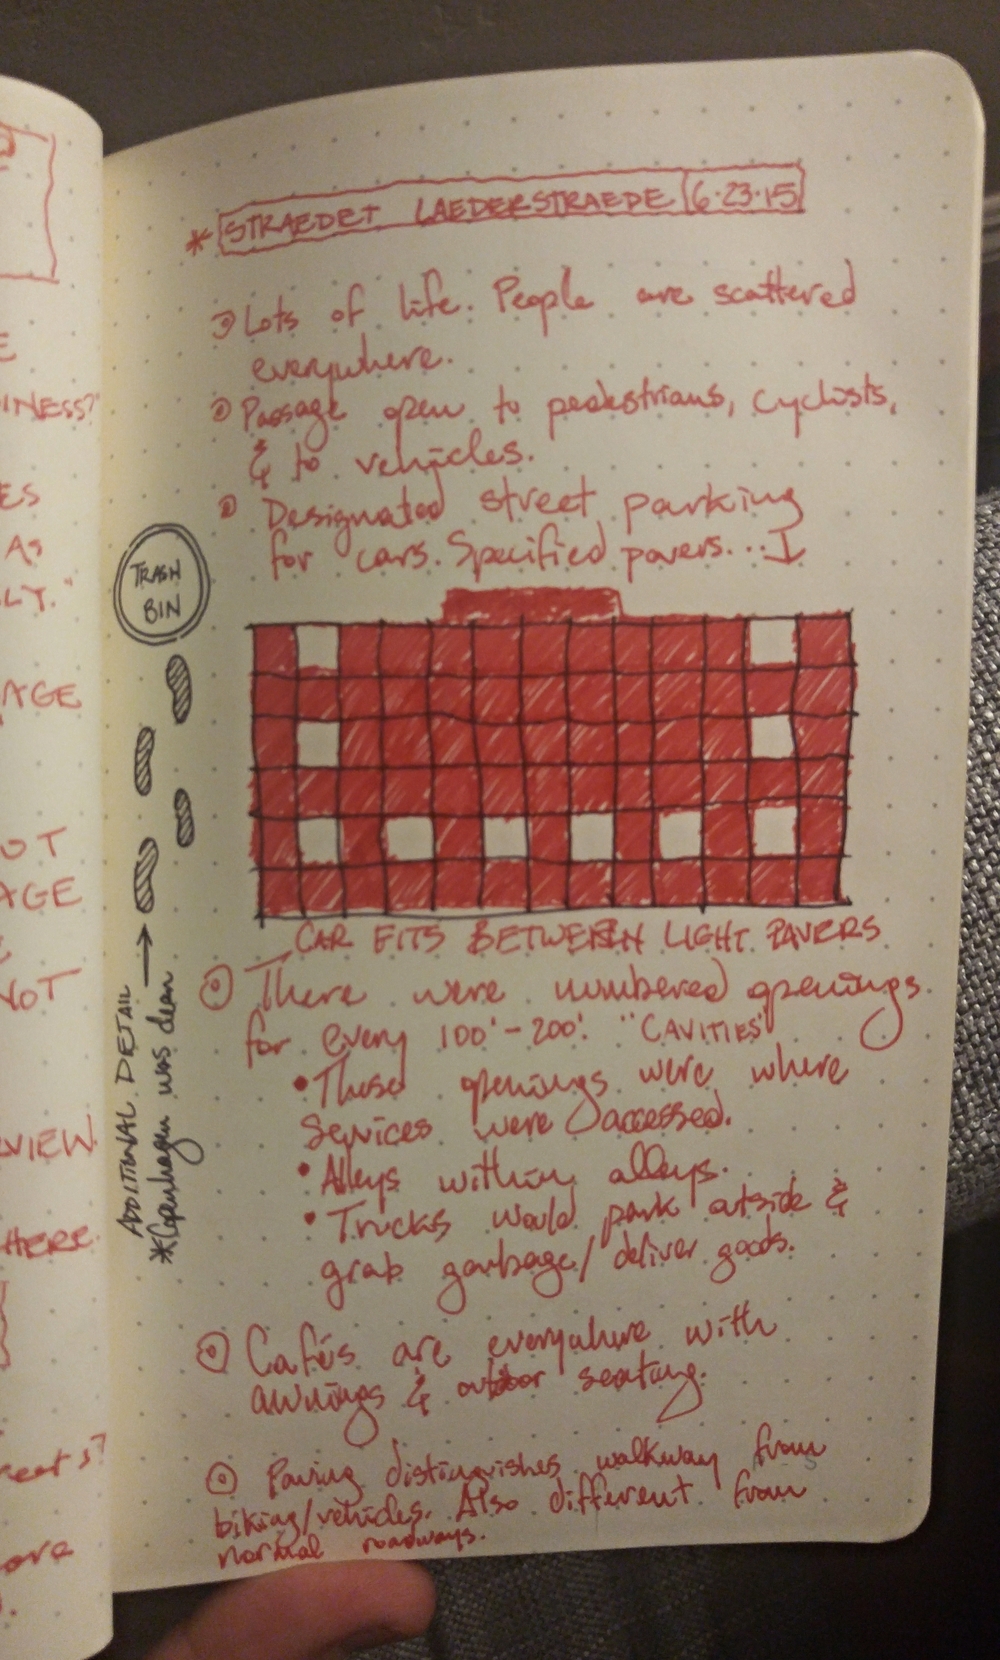 * STRAEDET LAEDERSTRAEDE 6·23·15
Lots of life. People are scattered
everywhere.
Passage open to pedestrians, cyclists,
& to vehicles.
Designated street parking
for cars. Specified pavers...
TRASH
BIN
CAR FITS BETWEEN LIGHT PAVERS
There were numbered openings
for every 100'-200'. "CAVITIES"
• These openings were where
services were accessed.
• Alleys within alleys.
• Trucks would park outside &
grab garbage/deliver goods.
ADDITIONAL DETAIL →
*Copenhagen was clean
Cafés are everywhere with
awnings & outdoor seating.
Paving distinguishes walkway from
biking/vehicles. Also different from
normal roadways.
INESS?"
ES
AS
LY."
AGE
OT
AGE
NOT
VIEW
HERE